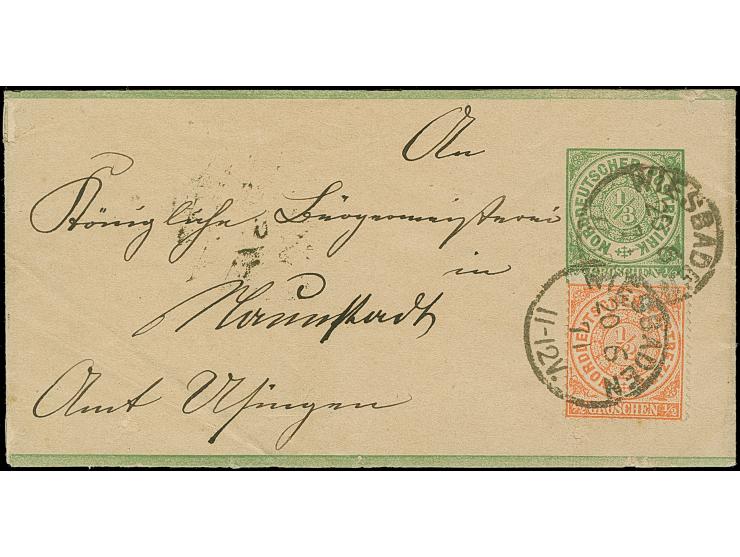 An
Königliche Bürgermeisterei
in
Naunstadt
Amt Usingen
NORDDEUTSCHER POSTBEZIRK
1/3
GROSCHEN 1/3
WIESBADEN
NORDDEUTSCHER POSTBEZIRK
1/2
1/2 GROSCHEN 1/2
WIESBADEN
20 6
71
11-12V.